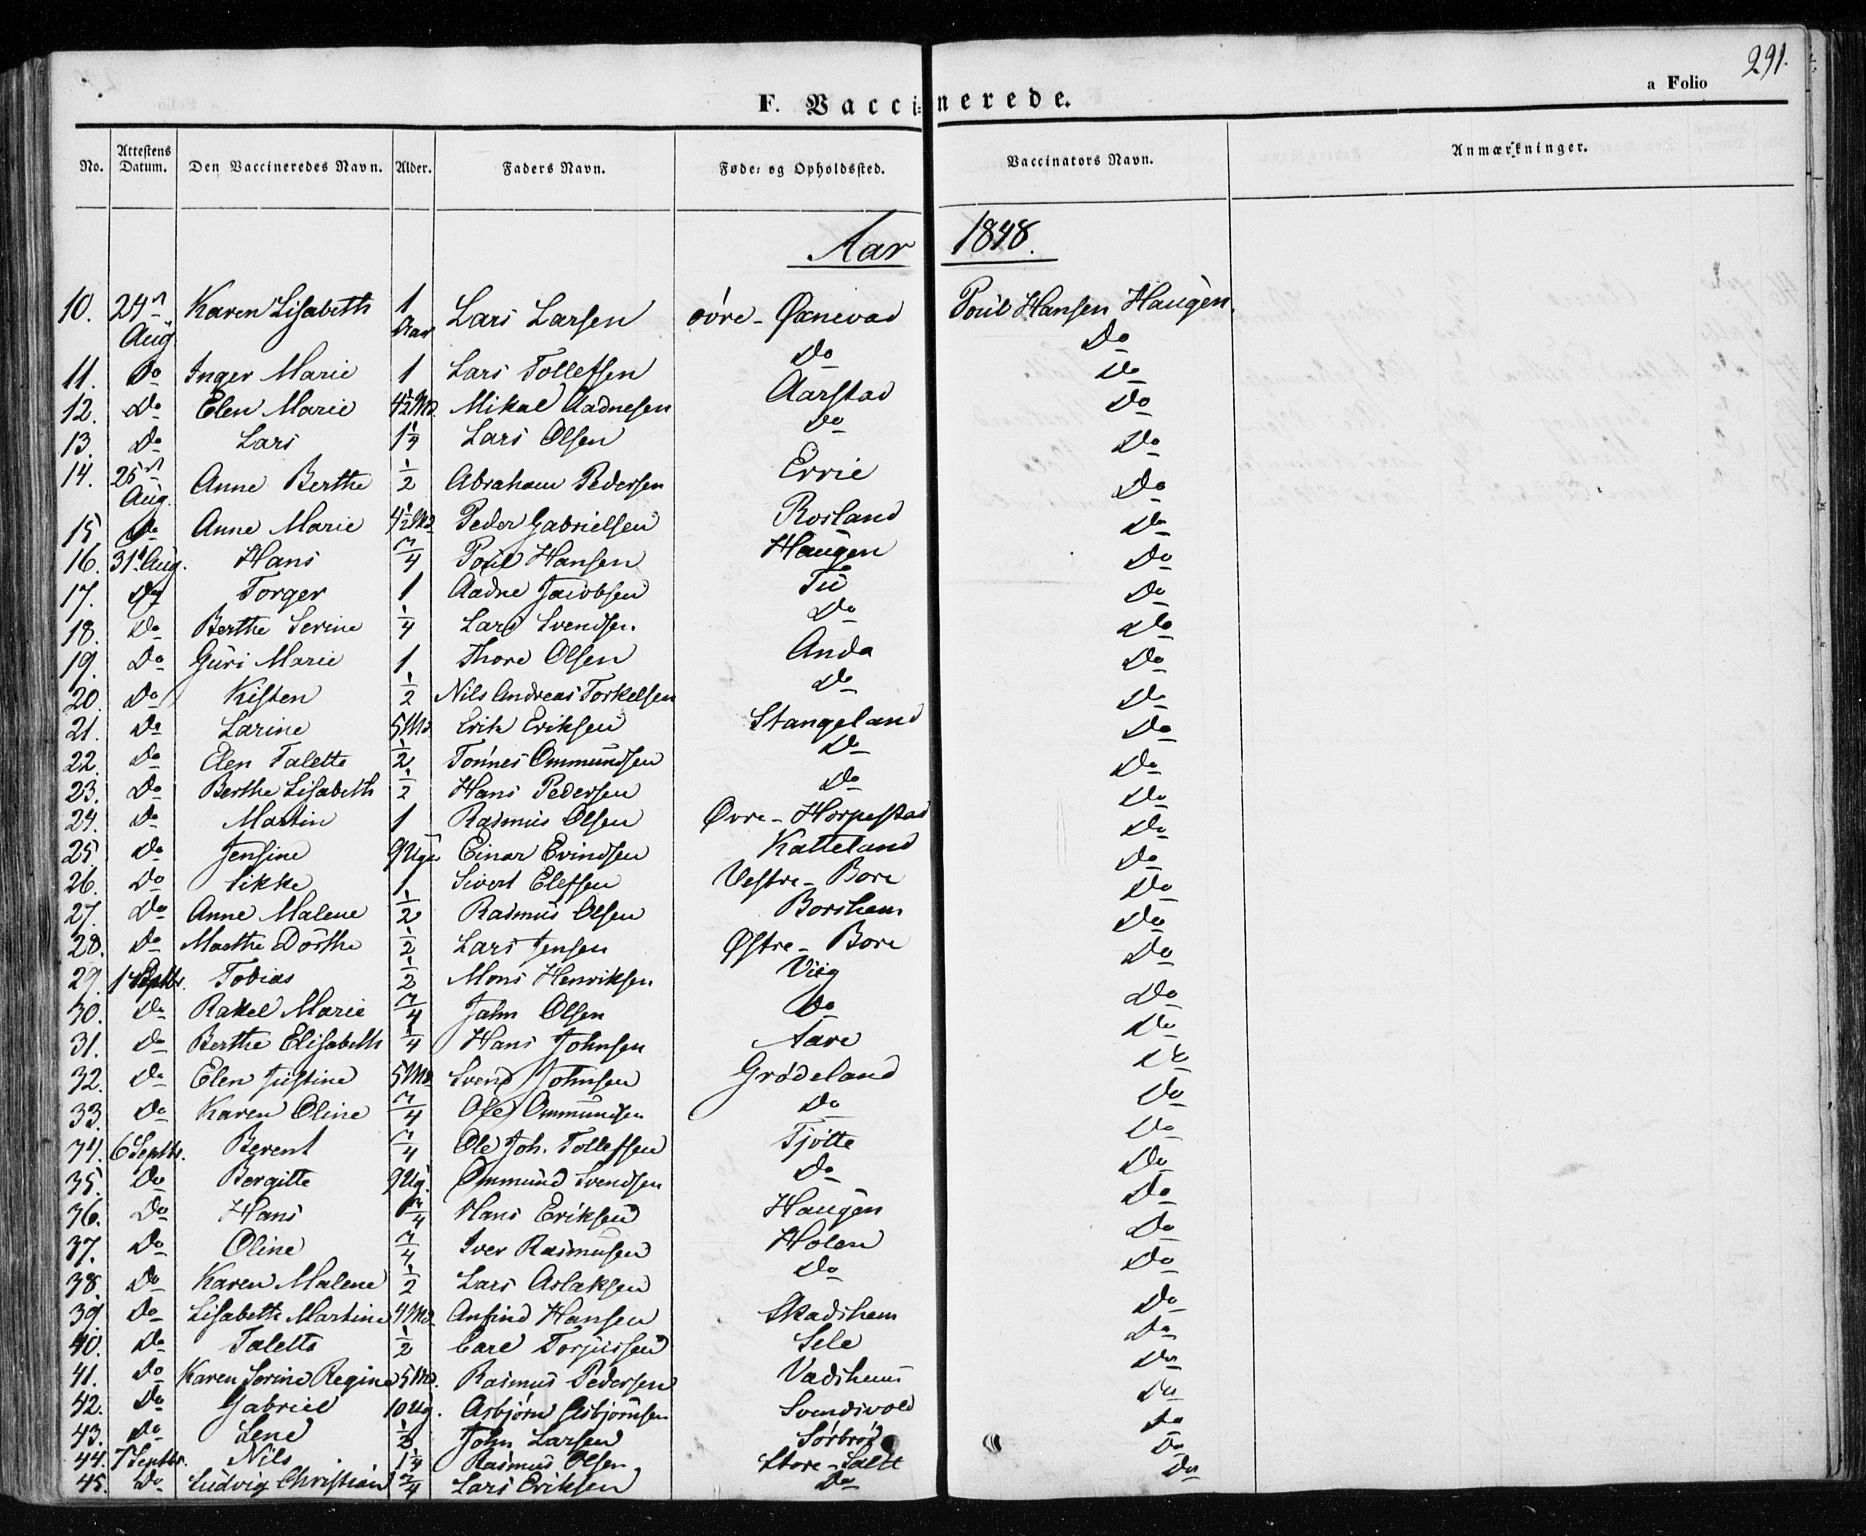 291.
a Folio
F. Vaccinerede.
No. Attestens Datum. Den Vaccineredes Navn. Alder. Faders Navn. Føde- og Opholdssted. Vaccinators Navn. Anmærkninger.
Aar 1848.
10. 24de Aug. Karen Lisabeth 1 Aar Lars Larsen øvre-Øxnevad Poul Hansen Haugen.
11. Do Inger Marie 1 Lars Tollefsen Do Do
12. Do Elen Marie 4½ Md. Mikal Aadnesen Aarstad Do
13. Do Lars 1¼ Lars Olsen Do Do
14. 25de Aug. Anne Berthe ½ Abraham Pedersen Errie Do
15. Do Anne Marie 4½ Md. Peder Gabrielsen Rosland Do
16. 31te Aug. Hans ¾ Poul Hansen Haugen Do
17. Do Torger 1 Aadne Jacobsen Tu Do
18. Do Berthe Serine ¼ Lars Svendsen Do Do
19. Do Guri Marie 1 Thore Olsen Anda Do
20. Do Kisten ½ Nils Andreas Torkelsen Do Do
21. Do Larine 5 Md. Erik Eriksen Stangeland Do
22. Do Elen Talette ½ Tønnes Ommundsen Do Do
23. Do Berthe Lisabeth ½ Hans Pedersen Do Do
24. Do Martin 1 Rasmus Olsen Øvre-Horpestad Do
25 Do Jensine 9 Uger Einar Evindsen Katteland Do
26. Do Sikke 1 Sivert Elefsen Vestre-Bore Do
27. Do Anne Malene ½ Rasmus Olsen Borshem Do
28. Do Marthe Dorthe ½ Lars Jensen Østre-Bore Do
29. 1 Septbr. Tobias ½ Mons Henriksen Viig Do
30. Do Rakel Marie ¾ Jahn Olsen Do Do
31. Do Berthe Elisabeth ¼ Hans Johnsen Aare Do
32. Do Elen Justine 5 Md. Svend Johnsen Grødeland Do
33. Do Karen Oline ¾ Ole Ommundsen Do Do
34. 6 Septbr. Berent ¾ Ole Joh. Tollefsen Tjøtte Do
35. Do Bergitte 9 Ug. Ommund Svendsen Do Do
36. Do Hans ¾ Hans Eriksen Haugen Do
37. Do Oline ¾ Iver Rasmusen Holen Do
38. Do Karen Malene ½ Lars Aslaksen Do Do
39. Do Lisabeth Martine 4 Md. Anfind Hansen Skadshem Do
40. Do Talette ½ Carl Torjussen Sele Do
41. Do Karen Serine Regine 5 Md. Rasmus Pedersen Vadshem Do
42. Do Gabriel 10 Ug. Asbjørn Asbjørnsen Svendsvold Do
43. Do Lene ½ John Larsen Sørbrød Do
44. 7 Septbr. Nils 1¼ Rasmus Olsen Store-Salte Do
45. Do Ludvig Christian ¾ Lars Eriksen Do Do